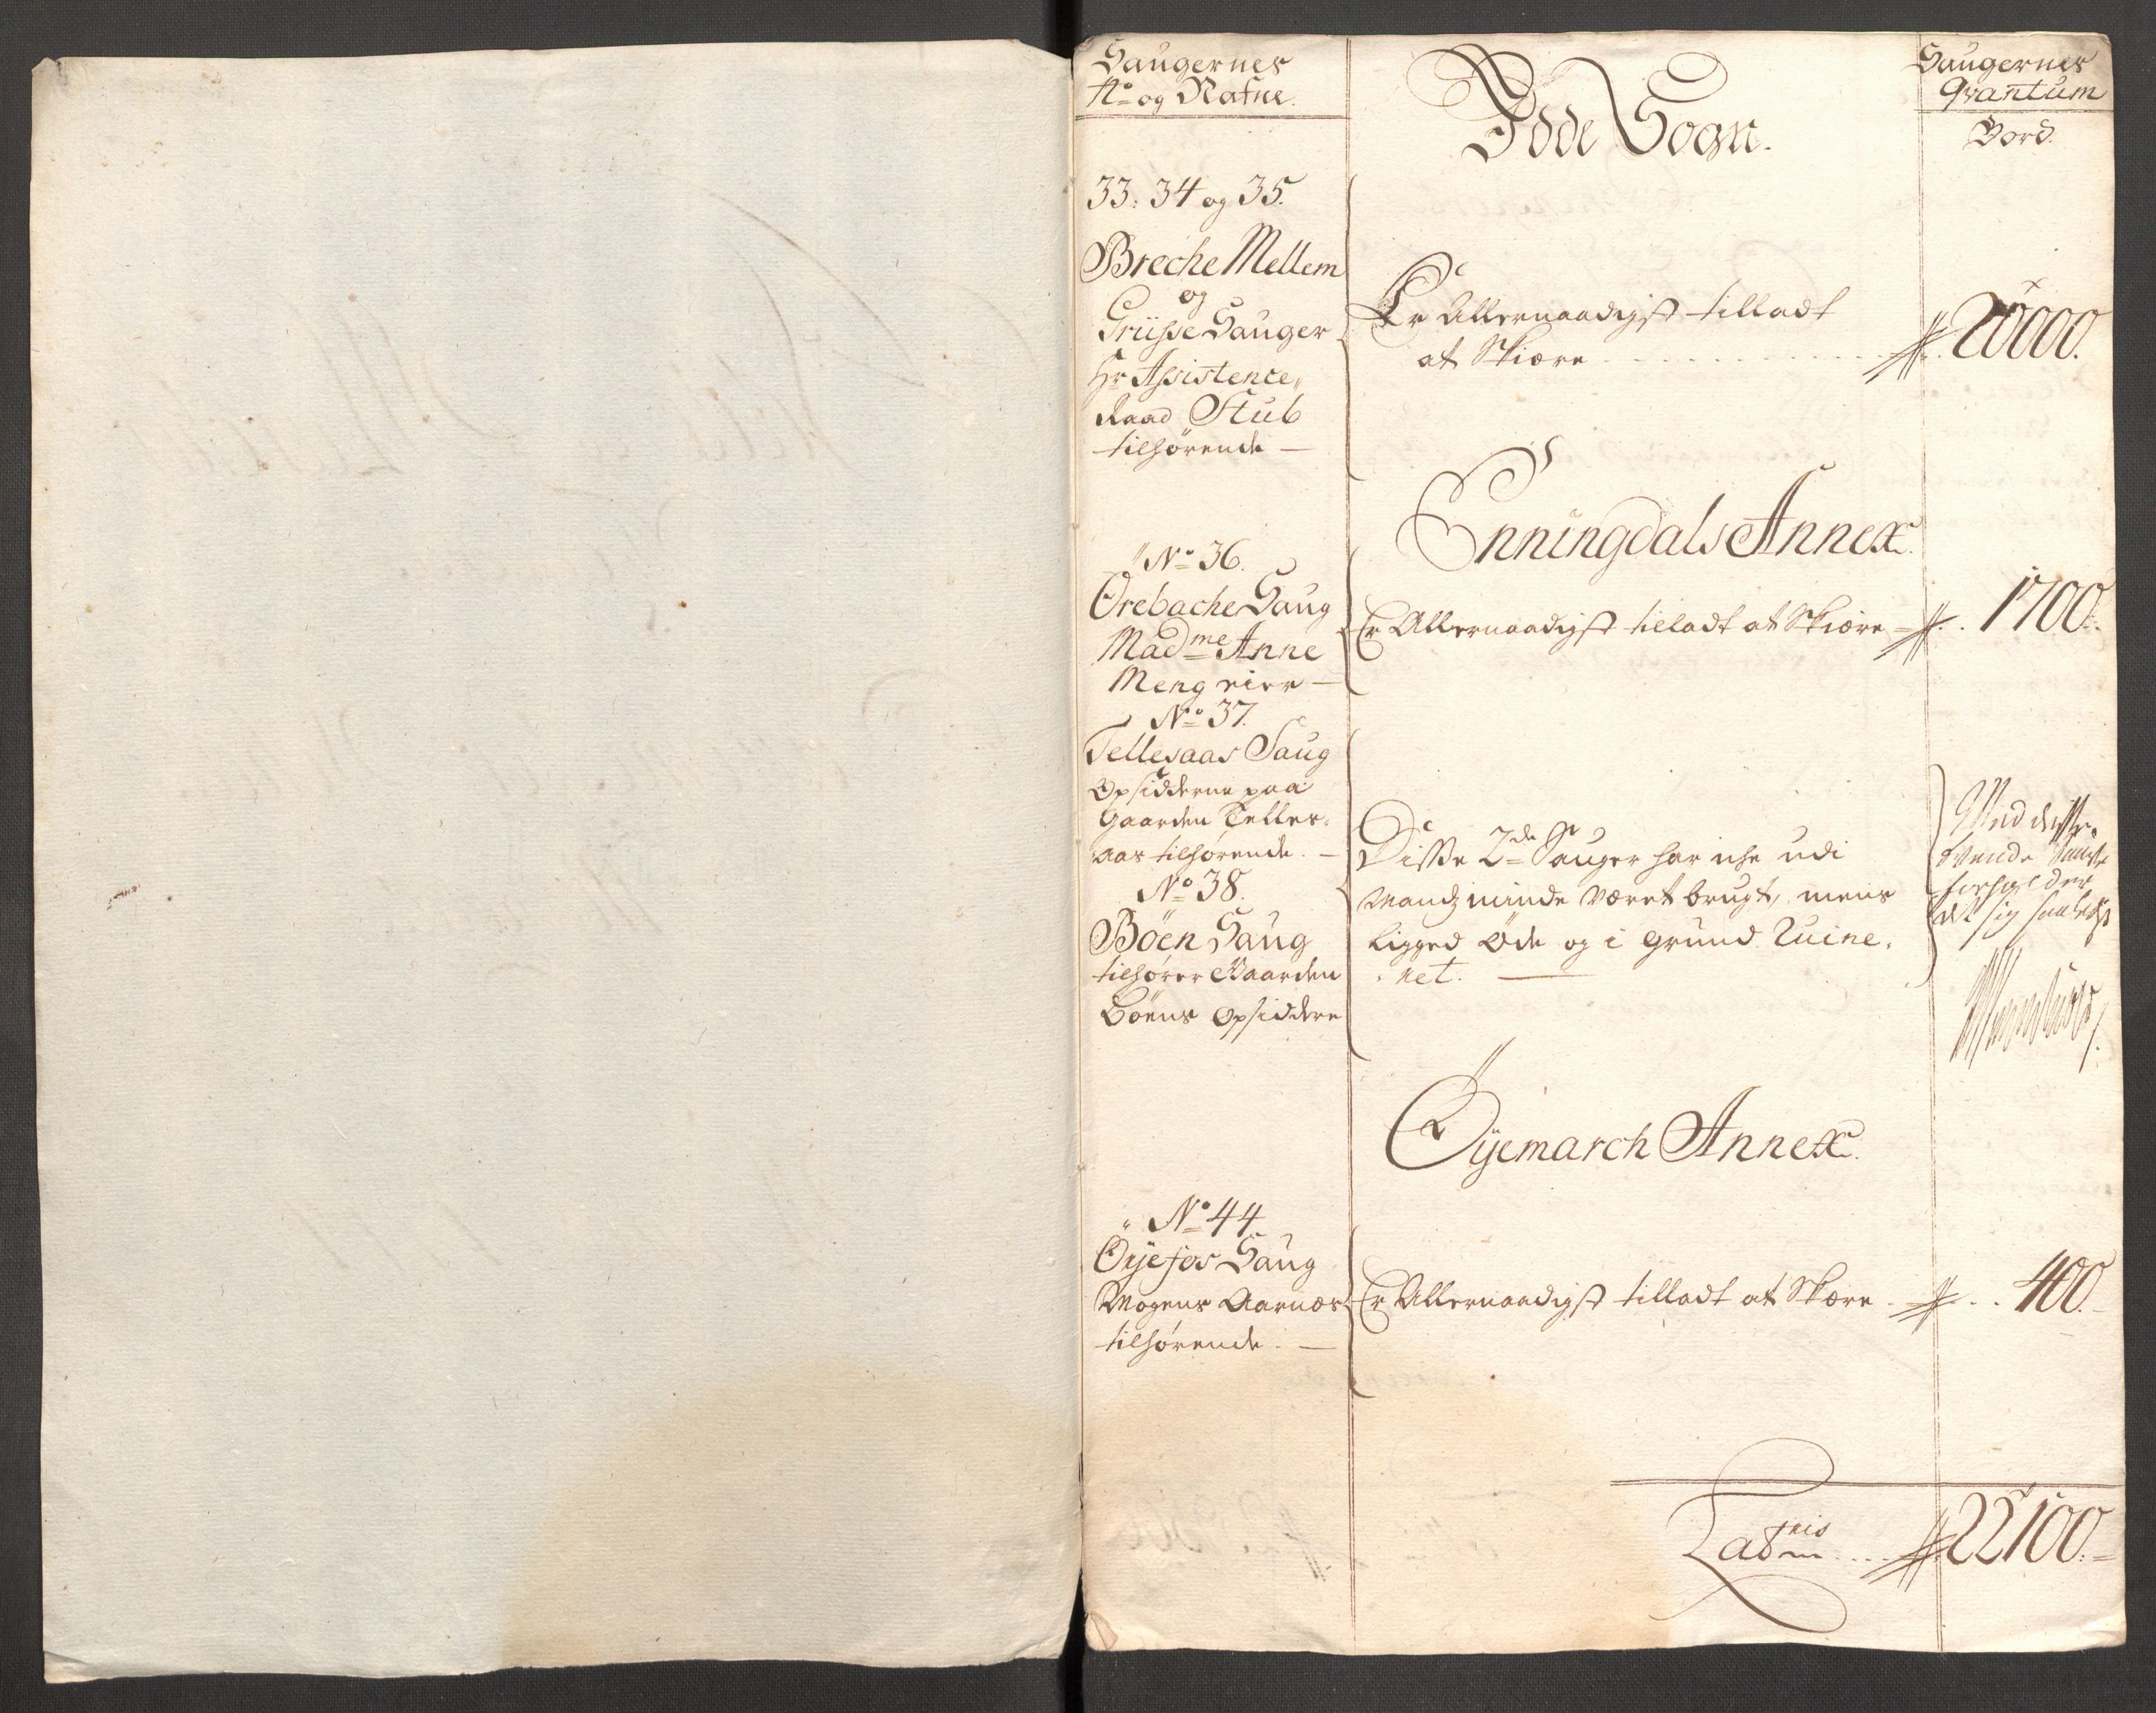 Saugernes
No og Nafne.
Idde Sogn.
Saugernes
Qvantum
Bord.
33: 34 og 35.
Breche Mellem
og
Grüsse Sauger
Hr Assistence,
Raad Stub
tilhörende —
Er Allernaadigst tilladt
at Skiære
20000.
Enningdals Annex.
No 36.
Örebache Saug
Madme Anne
Meng eier —
Er Allernaadigst tilladt at Skiære
1700.
No 37.
Tellesaas Saug
Opsidderne paa
Gaarden Telles-
aas tilhörende. —
No 38.
Böen Saug
tilhörer Gaarden
Böens Opsiddere
Disse 2de Sauger har iche udi
Mands minde været brugt, mens
ligged Öde og i grund Ruine-
ret.
Med disse
forholder
det sig saaledes
Öÿemarch Annex.
No 44
Öÿefos Saug
Mogens Aarnæs
tilhörende. —
Er Allernaadigst tilladt at Skære
400.
Latris
22100.